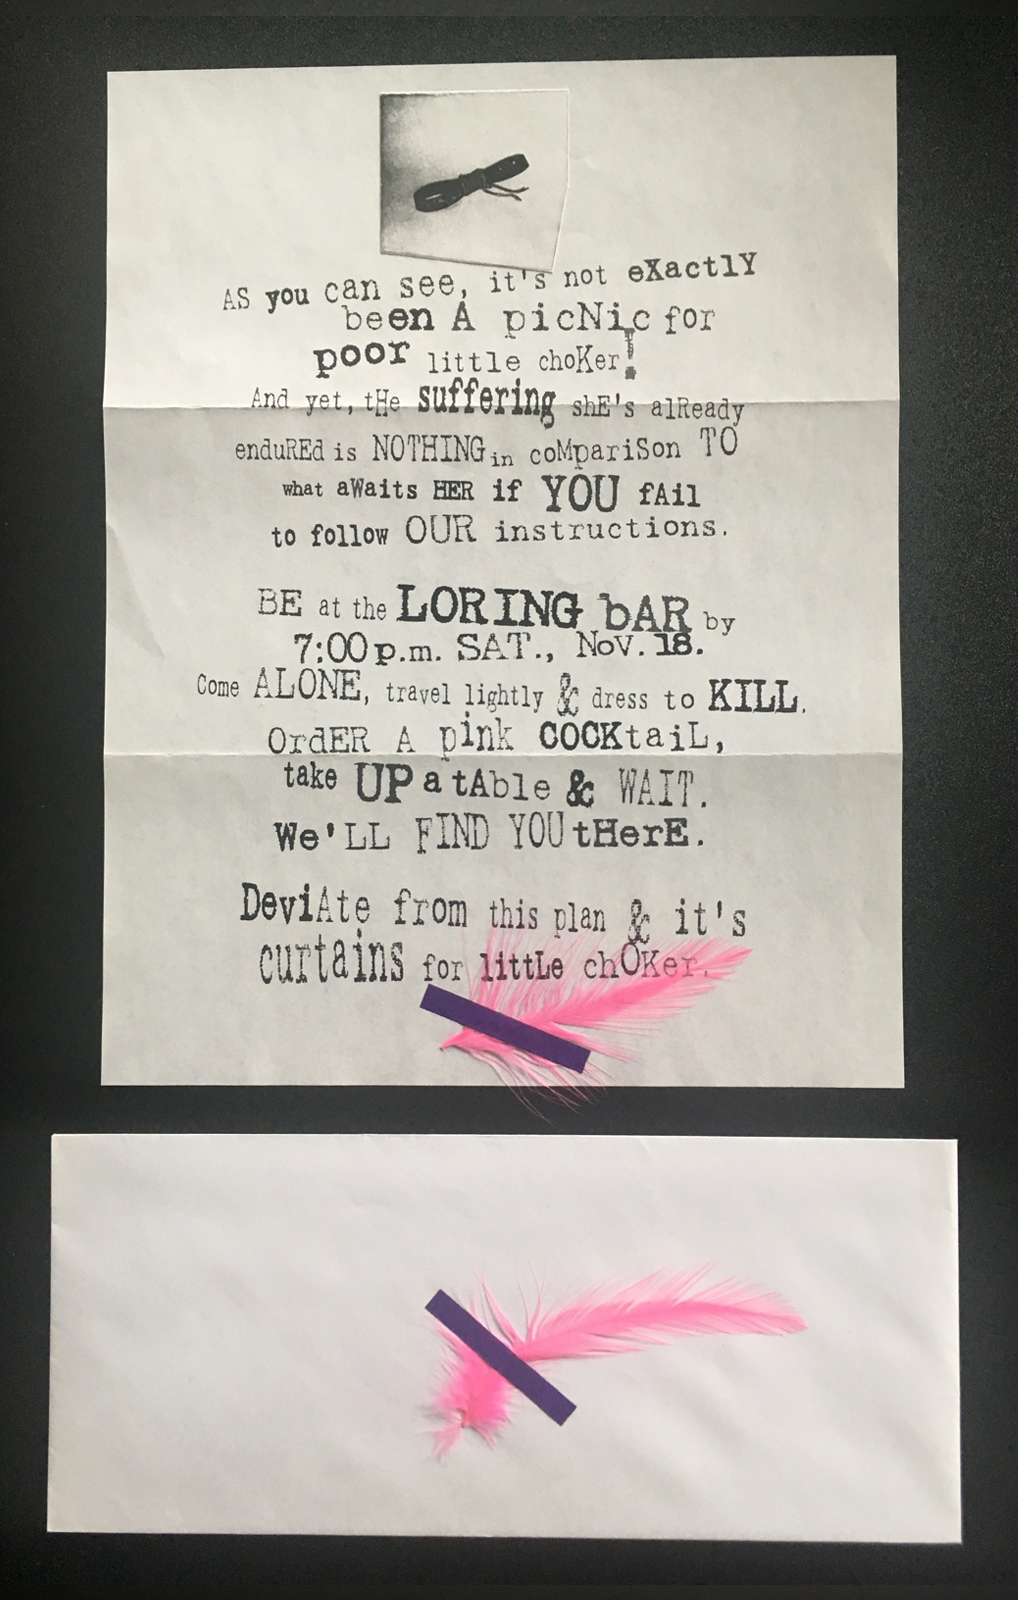 AS you can see, it's not eXactlY
been A picNic for
poor little choKer!
And yet, tHe suffering shE's alReady
enduREd is NOTHING in coMpariSon TO
what aWaits HER if YOU fAil
to follow OUR instructions.
BE at the LORING bAR by
7:00 p.m. SAT., NoV. 18.
Come ALONE, travel lightly & dress to KILL.
OrdER A pink COCKtaiL,
take UP a tAble & WAIT.
We'LL FIND YOU tHerE.
DeviAte from this plan & it's
curtains for littLe chOKer.